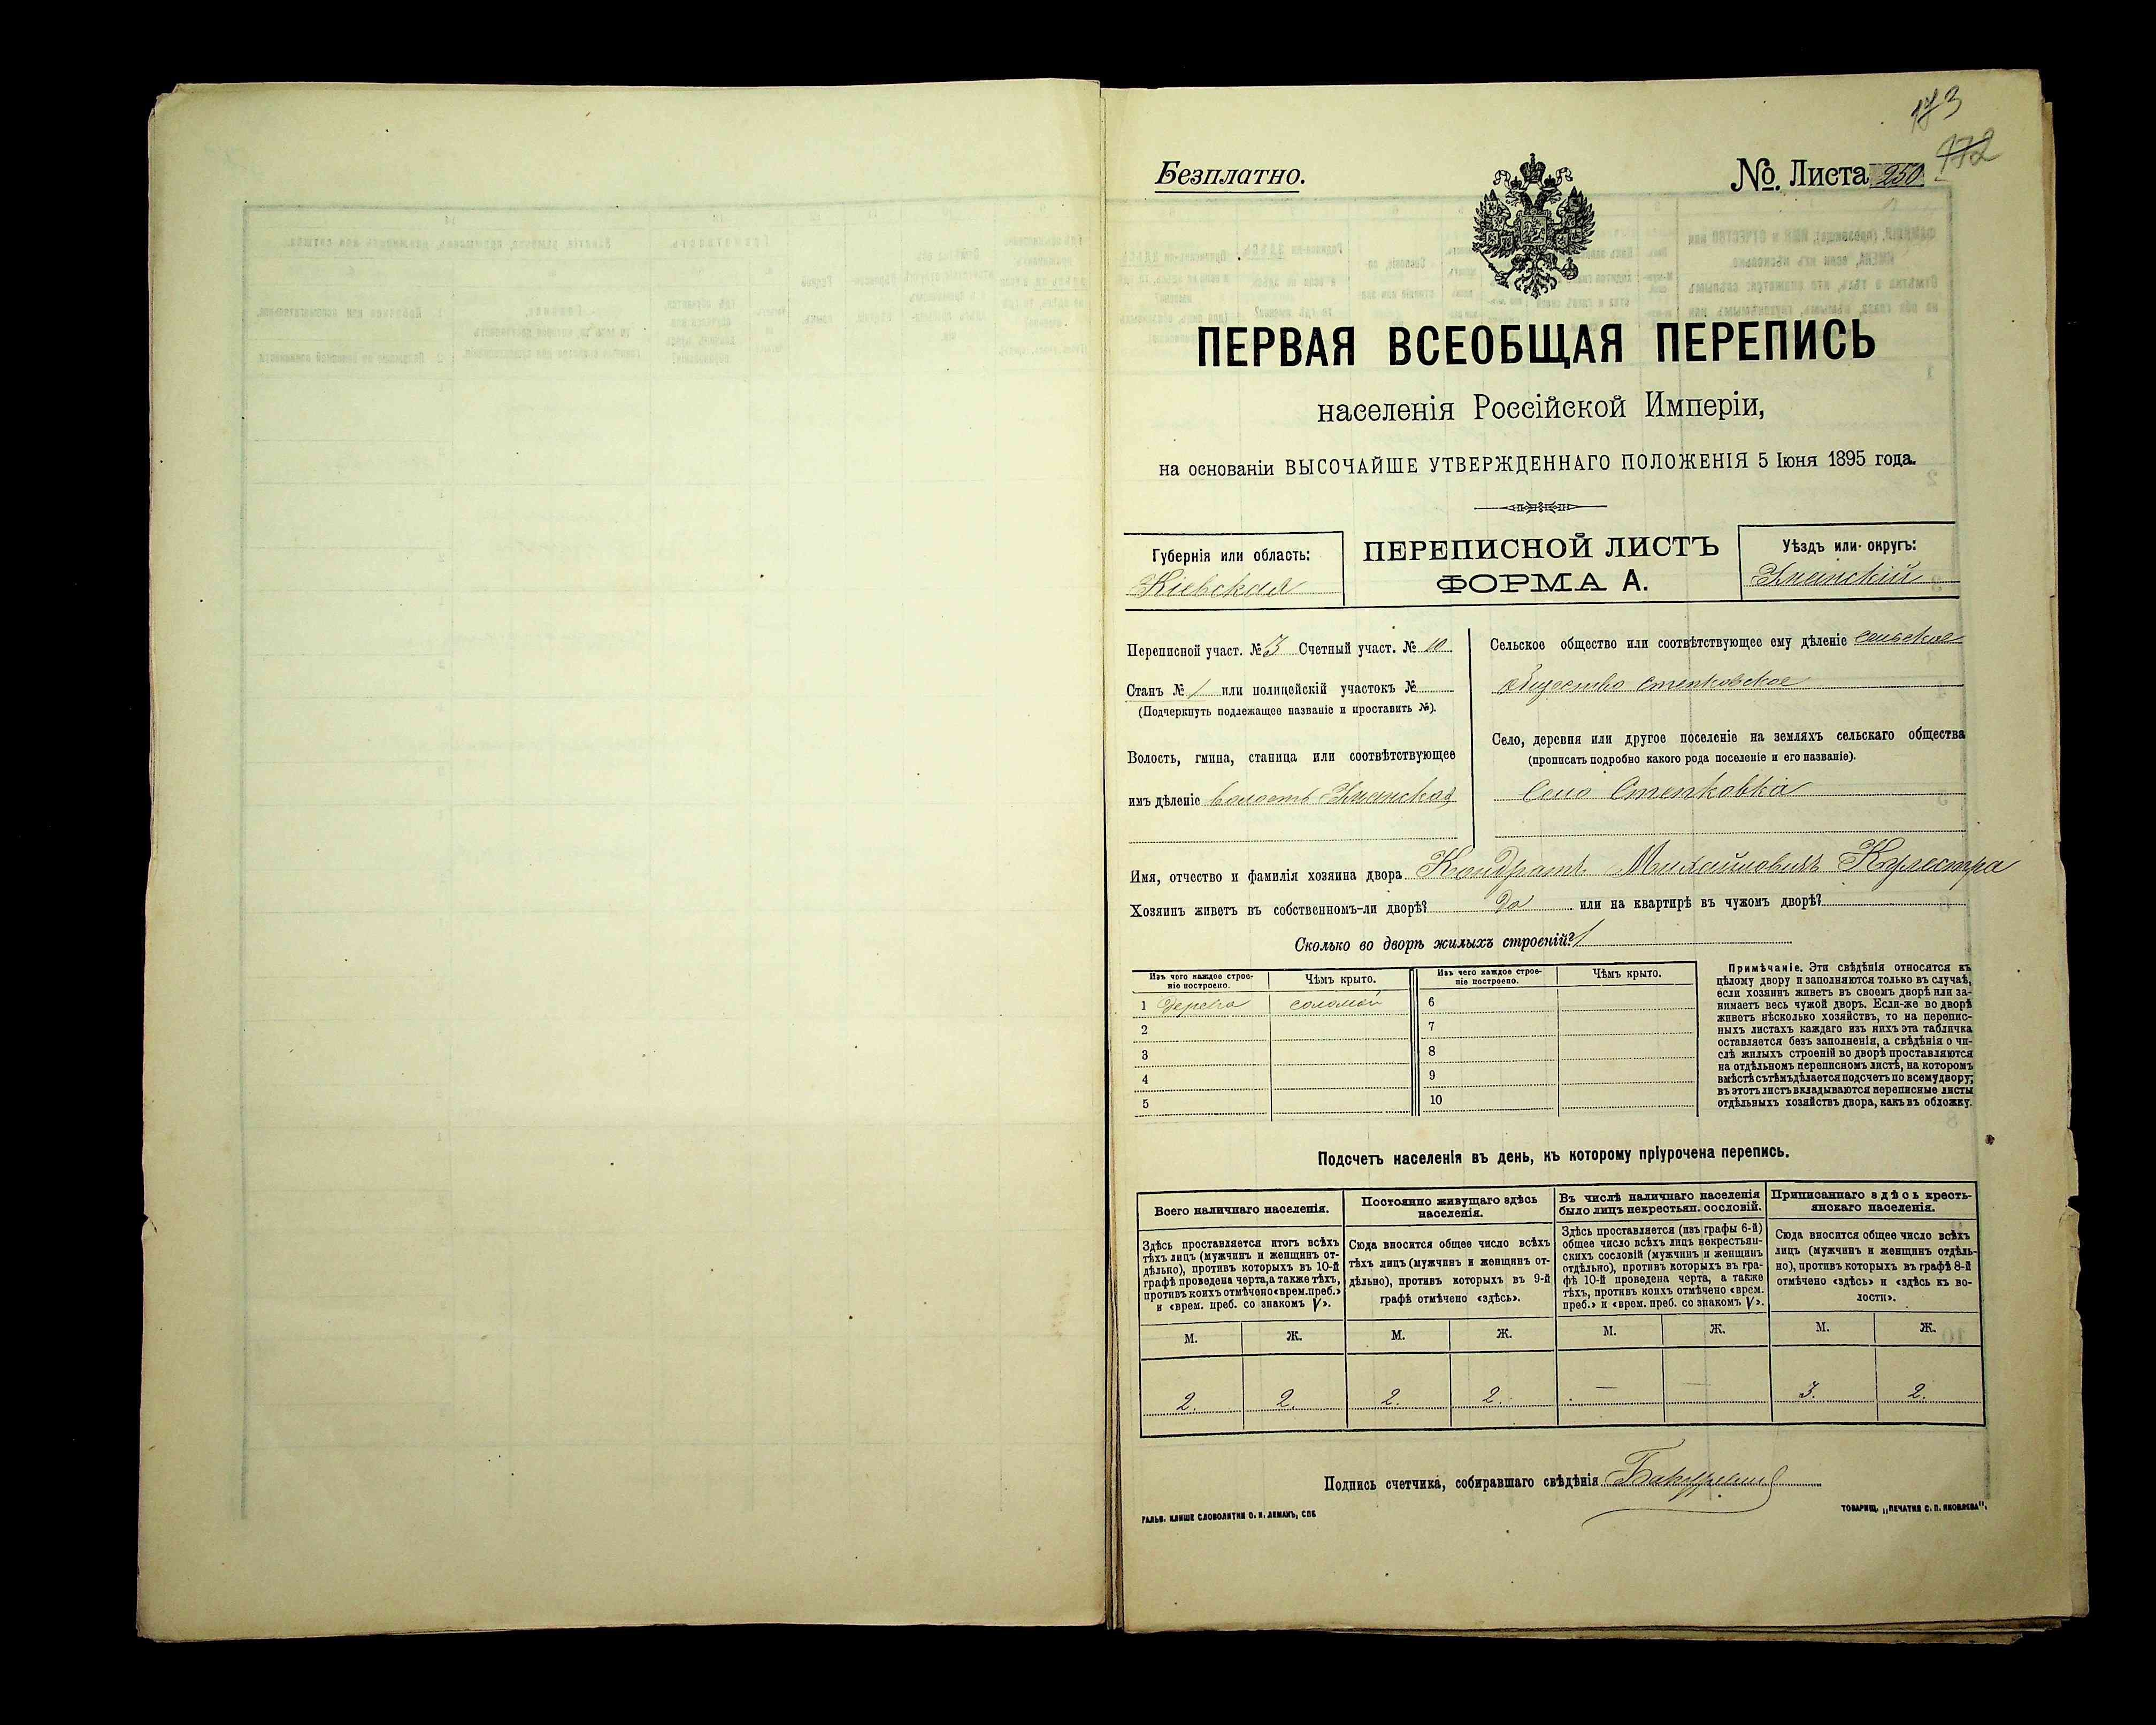 173
172
Безплатно.
№. Листа 250
ПЕРВАЯ ВСЕОБЩАЯ ПЕРЕПИСЬ
населенія Россійской Имперіи,
на основаніи ВЫСОЧАЙШЕ УТВЕРЖДЕННАГО ПОЛОЖЕНІЯ 5 Іюня 1895 года.
Губернія или область:
Кіевская
ПЕРЕПИСНОЙ ЛИСТЪ
ФОРМА А.
Уѣздъ или округъ:
Уманскій
Переписной участ. № 3 Счетный участ. № 10
Станъ № 1 или полицейскій участокъ №
(Подчеркнуть подлежащее названіе и проставить №).
Волость, гмина, станица или соотвѣтствующее
имъ дѣленіе волость Уманская
Сельское общество или соотвѣтствующее ему дѣленіе сельское
общество степковское
Село, деревня или другое поселеніе на земляхъ сельскаго общества
(прописать подробно какого рода поселеніе и его названіе).
Село Степковка
Имя, отчество и фамилія хозяина двора Кондратъ Михайловичъ
Хозяинъ живетъ въ собственномъ-ли дворѣ? Да или на квартирѣ въ чужомъ дворѣ?
Сколько во дворѣ жилыхъ строеній? 1
Изъ чего каждое строе-
ніе построено.
Чѣмъ крыто.
Изъ чего каждое строе-
ніе построено.
Чѣмъ крыто.
1 Дерева соломой 6
2 7
3 8
4 9
5 10
Примѣчаніе. Эти свѣдѣнія относятся къ
цѣлому двору и заполняются только въ случаѣ,
если хозяинъ живетъ въ своемъ дворѣ или за-
нимаетъ весь чужой дворъ. Если-же во дворѣ
живетъ нѣсколько хозяйствъ, то на перепис-
ныхъ листахъ каждаго изъ нихъ эта табличка
оставляется безъ заполненія, а свѣдѣнія о чи-
слѣ жилыхъ строеній во дворѣ проставляются
на отдѣльномъ переписномъ листѣ, на которомъ
вмѣстѣ съ тѣмъ дѣлается подсчетъ по всему двору;
въ этотъ листъ вкладываются переписные листы
отдѣльныхъ хозяйствъ двора, какъ въ обложку.
Подсчетъ населенія въ день, къ которому пріурочена перепись.
Всего наличнаго населенія.
Здѣсь проставляется итогъ всѣхъ
тѣхъ лицъ (мужчинъ и женщинъ от-
дѣльно), противъ которыхъ въ 10-й
графѣ проведена черта, а также тѣхъ,
противъ коихъ отмѣчено «врем. преб.»
и «врем. преб. со знакомъ V».
Постоянно живущаго здѣсь
населенія.
Сюда вносится общее число всѣхъ
тѣхъ лицъ (мужчинъ и женщинъ от-
дѣльно), противъ которыхъ въ 9-й
графѣ отмѣчено «здѣсь».
Въ числѣ наличнаго населенія
было лицъ некрестьян. сословій.
Здѣсь проставляется (изъ графы 6-й)
общее число всѣхъ лицъ некрестьян-
скихъ сословій (мужчинъ и женщинъ
отдѣльно), противъ которыхъ въ гра-
фѣ 10-й проведена черта, а также
тѣхъ, противъ коихъ отмѣчено «врем.
преб.» и «врем. преб. со знакомъ V».
Приписаннаго здѣсь кресть-
янскаго населенія.
Сюда вносится общее число всѣхъ
лицъ (мужчинъ и женщинъ отдѣль-
но), противъ которыхъ въ графѣ 8-й
отмѣчено «здѣсь» и «здѣсь къ во-
лости».
М. Ж. М. Ж. М. Ж. М. Ж.
2. 2. 2. 2. — — 3. 2.
Подпись счетчика, собиравшаго свѣдѣнія
ГАЛЬВ. КЛИШЕ СЛОВОЛИТНИ О. И. ЛЕМАНЪ, СПБ
ТОВАРИЩ. „ПЕЧАТНЯ С. П. ЯКОВЛЕВА".